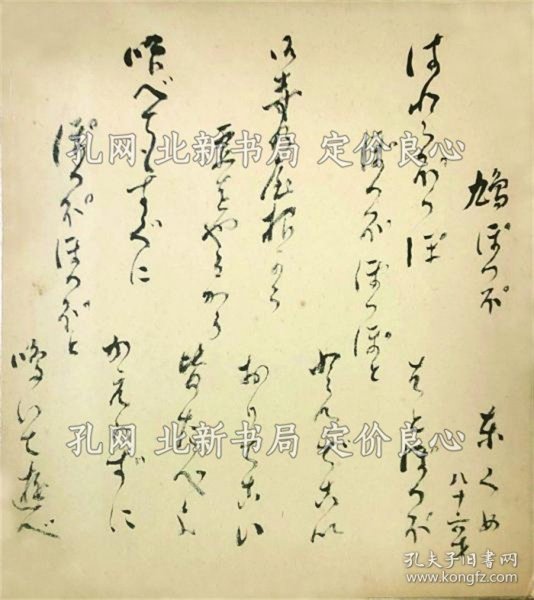 鳩ぽつぽ
東くめ
八十六才
はとぽつぽ
はとぽつぽ
ぽつぽぽつぽと
とんでこい
お寺の屋根から
おりてこい
豆をやるから
皆たべよ
喰べてもすぐに
かえらずに
ぽつぽぽつぽと
鳴いて遊べ
孔网 北新书局 定价良心
孔网 北新书局 定价良心
孔夫子旧书网
www.kongfz.com